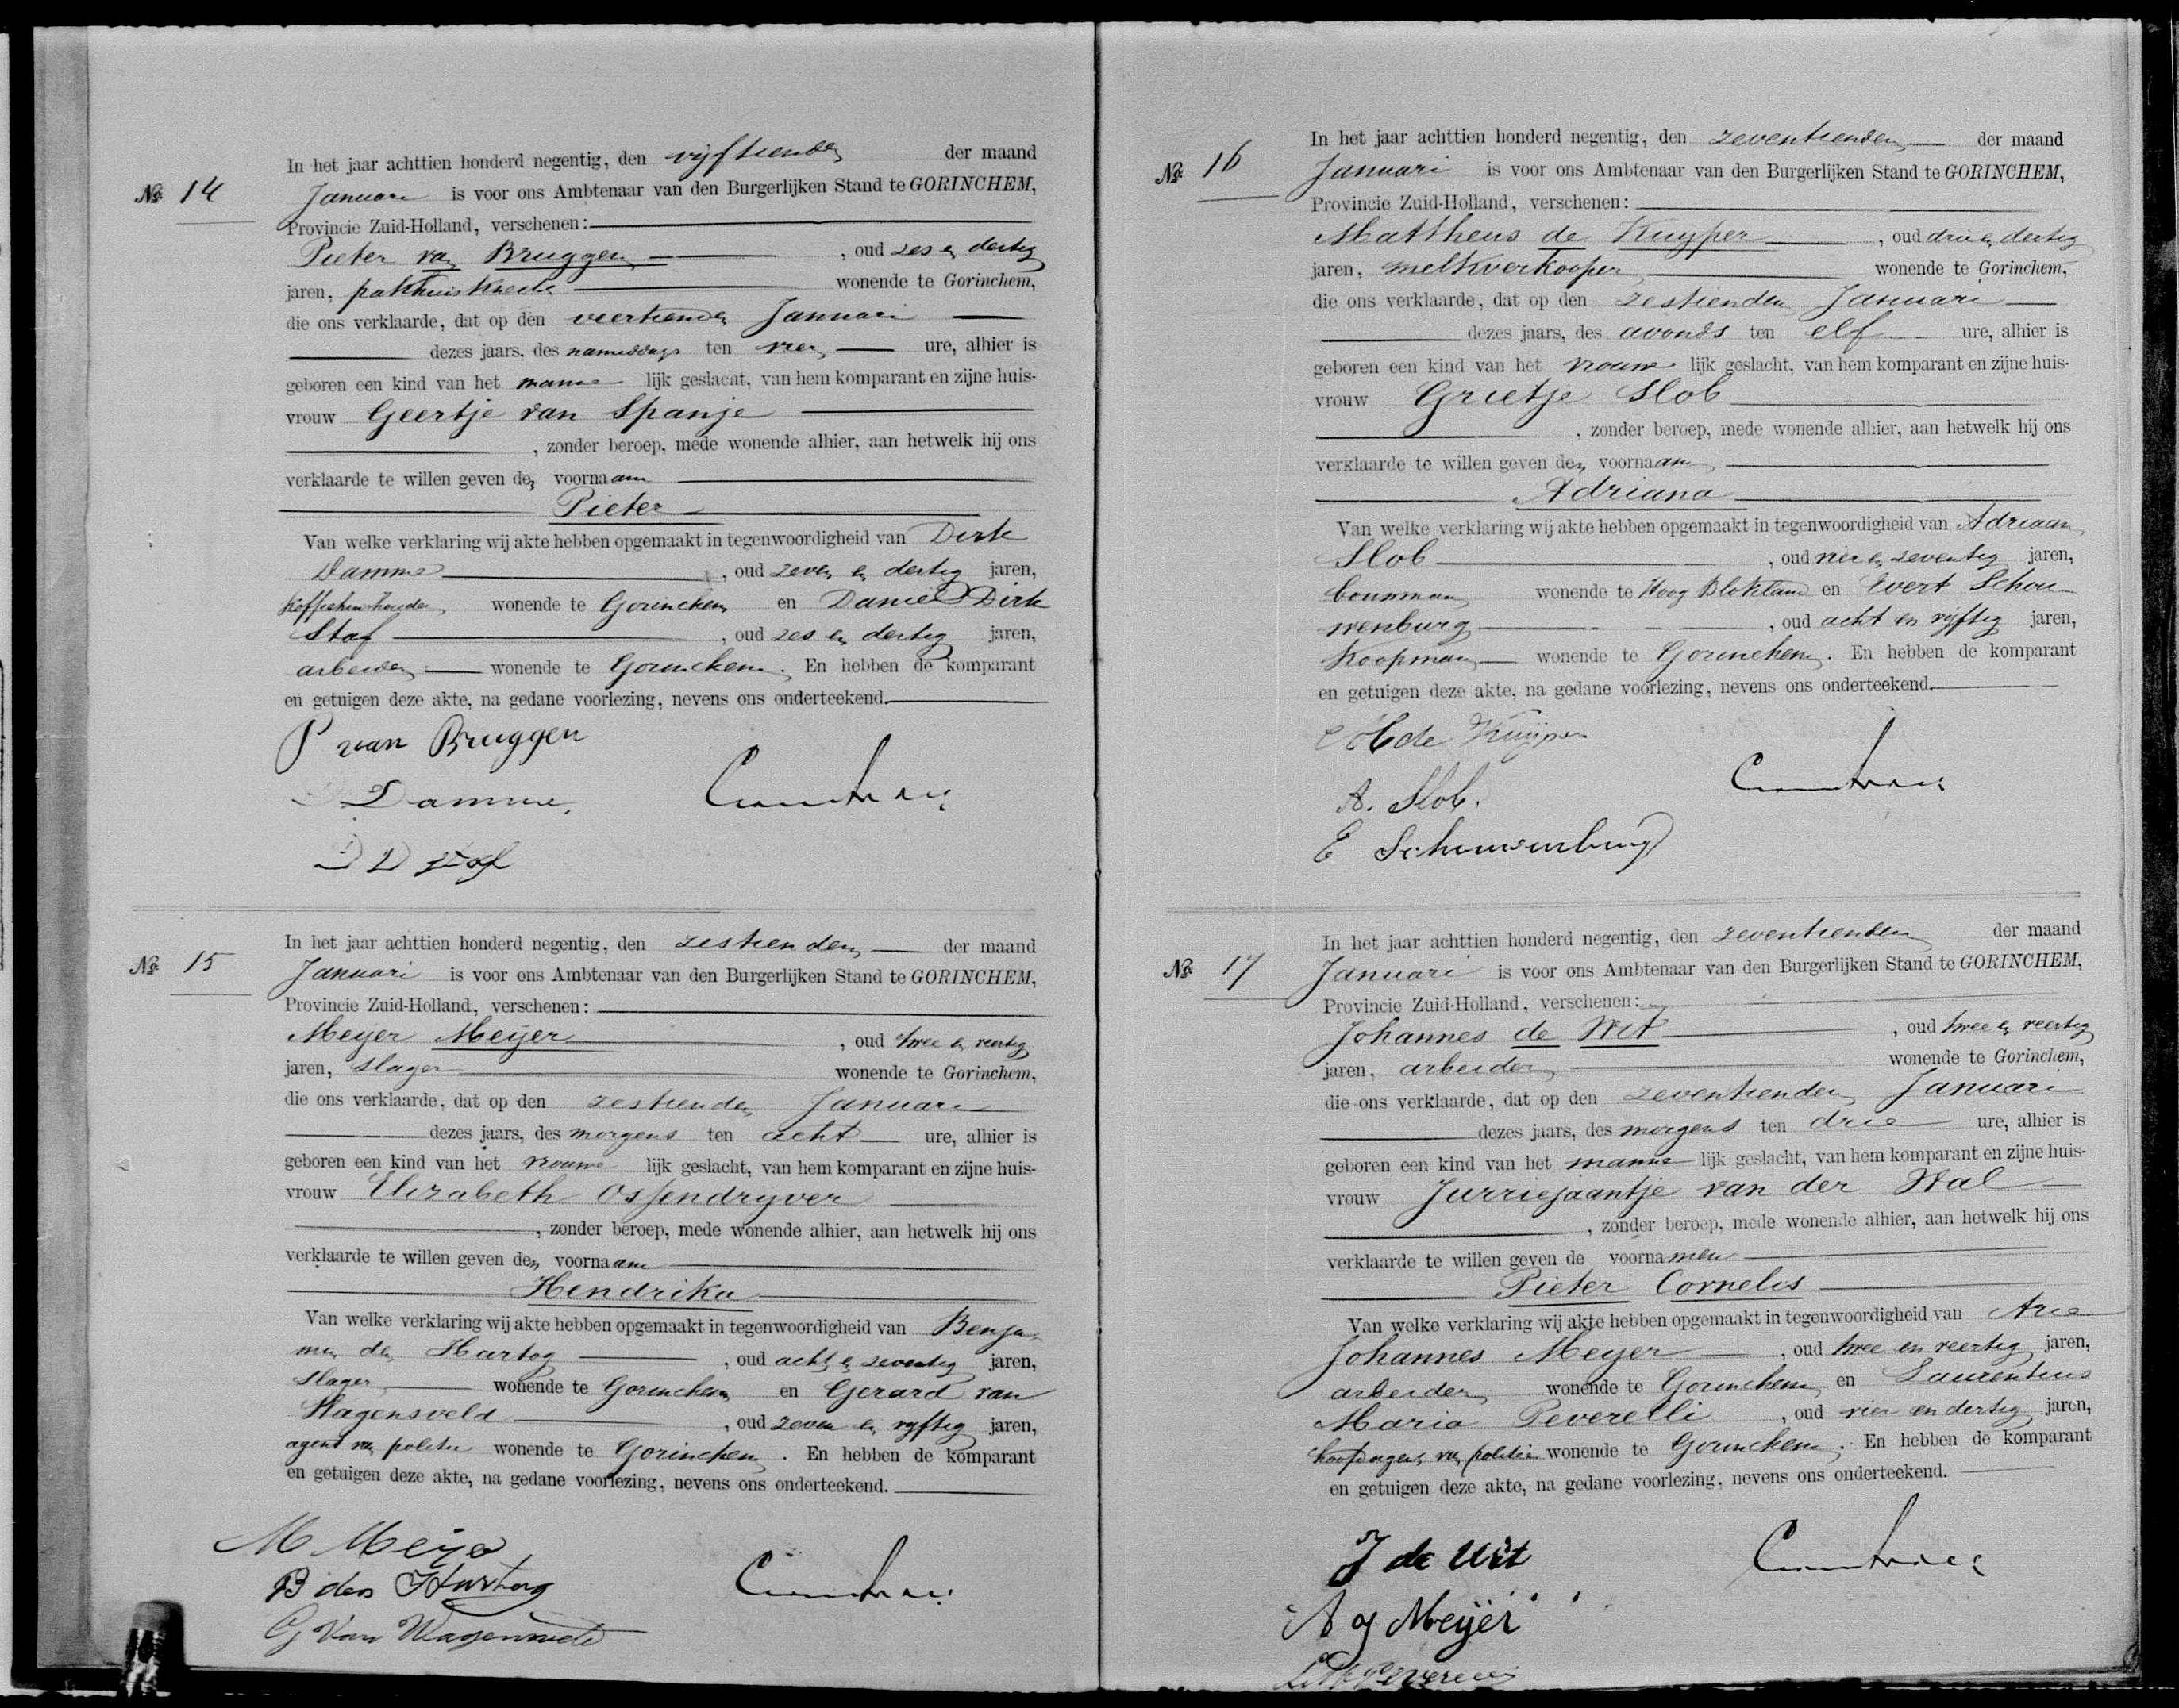 In het jaar achttien honderd negentig, den vijftienden der maand
No. 14
Januari is voor ons Ambtenaar van den Burgerlijken Stand te GORINCHEM,
Provincie Zuid-Holland, verschenen:
Pieter van Bruggen, oud zes en dertig
jaren, pakhuisknecht wonende te Gorinchem,
die ons verklaarde, dat op den veertienden Januari
dezes jaars, des namiddags ten vier ure, alhier is
geboren een kind van het manne lijk geslacht, van hem komparant en zijne huis-
vrouw Geertje van Spanje
, zonder beroep, mede wonende alhier, aan hetwelk hij ons
verklaarde te willen geven den voornaam
Pieter
Van welke verklaring wij akte hebben opgemaakt in tegenwoordigheid van Dirk
Damme, oud zeven en dertig jaren,
koffiehuishouder, wonende te Gorinchem en Daniel Dirk
Staf, oud zes en dertig jaren,
arbeider, wonende te Gorinchem. En hebben de komparant
en getuigen deze akte, na gedane voorlezing, nevens ons onderteekend.
P van Bruggen
D Damme
D D Staf
In het jaar achttien honderd negentig, den zestienden der maand
No. 15
Januari is voor ons Ambtenaar van den Burgerlijken Stand te GORINCHEM,
Provincie Zuid-Holland, verschenen:
Meyer Meijer, oud twee en veertig
jaren, slager wonende te Gorinchem,
die ons verklaarde, dat op den zestienden Januari
dezes jaars, des morgens ten acht ure, alhier is
geboren een kind van het vrouwe lijk geslacht, van hem komparant en zijne huis-
vrouw Elizabeth Ossendryver
, zonder beroep, mede wonende alhier, aan hetwelk hij ons
verklaarde te willen geven den voornaam
Hendrika
Van welke verklaring wij akte hebben opgemaakt in tegenwoordigheid van Benja-
min den Hartog, oud acht en zeventig jaren,
slager, wonende te Gorinchem en Gerard van
Wagensveld, oud zeven en vyftig jaren,
agent van politie wonende te Gorinchem. En hebben de komparant
en getuigen deze akte, na gedane voorlezing, nevens ons onderteekend.
M Meijer
B den Hartog
G Van Wagensveld
In het jaar achttien honderd negentig, den zeventienden der maand
No. 16
Januari is voor ons Ambtenaar van den Burgerlijken Stand te GORINCHEM,
Provincie Zuid-Holland, verschenen:
Mattheus de Kuyper, oud drie en dertig
jaren, melkverkooper, wonende te Gorinchem,
die ons verklaarde, dat op den zestienden Januari
dezes jaars, des avonds ten elf ure, alhier is
geboren een kind van het vrouwe lijk geslacht, van hem komparant en zijne huis-
vrouw Grietje Slob
, zonder beroep, mede wonende alhier, aan hetwelk hij ons
verklaarde te willen geven den voornaam
Adriana
Van welke verklaring wij akte hebben opgemaakt in tegenwoordigheid van Adriaan
Slob, oud vier en zeventig jaren,
bouwman, wonende te Hoog Blokland en Evert Schou-
wenburg, oud acht en vijftig jaren,
koopman, wonende te Gorinchem. En hebben de komparant
en getuigen deze akte, na gedane voorlezing, nevens ons onderteekend.
M de Kuijper
A. Slob.
E Schouwenburg
In het jaar achttien honderd negentig, den zeventienden der maand
No. 17
Januari is voor ons Ambtenaar van den Burgerlijken Stand te GORINCHEM,
Provincie Zuid-Holland, verschenen:
Johannes de Wit, oud twee en veertig
jaren, arbeider, wonende te Gorinchem,
die ons verklaarde, dat op den zeventienden Januari
dezes jaars, des morgens ten drie ure, alhier is
geboren een kind van het manne lijk geslacht, van hem komparant en zijne huis-
vrouw Jurriejaantje van der Wal
, zonder beroep, mede wonende alhier, aan hetwelk hij ons
verklaarde te willen geven de voornamen
Pieter Cornelis
Van welke verklaring wij akte hebben opgemaakt in tegenwoordigheid van Arie
Johannes Meyer, oud twee en veertig jaren,
arbeider, wonende te Gorinchem, en Laurentius
Maria Peverelli, oud vier en dertig jaren,
hoofdagent van politie wonende te Gorinchem. En hebben de komparant
en getuigen deze akte, na gedane voorlezing, nevens ons onderteekend.
J de Wit
A J Meijer
L M Peverelli